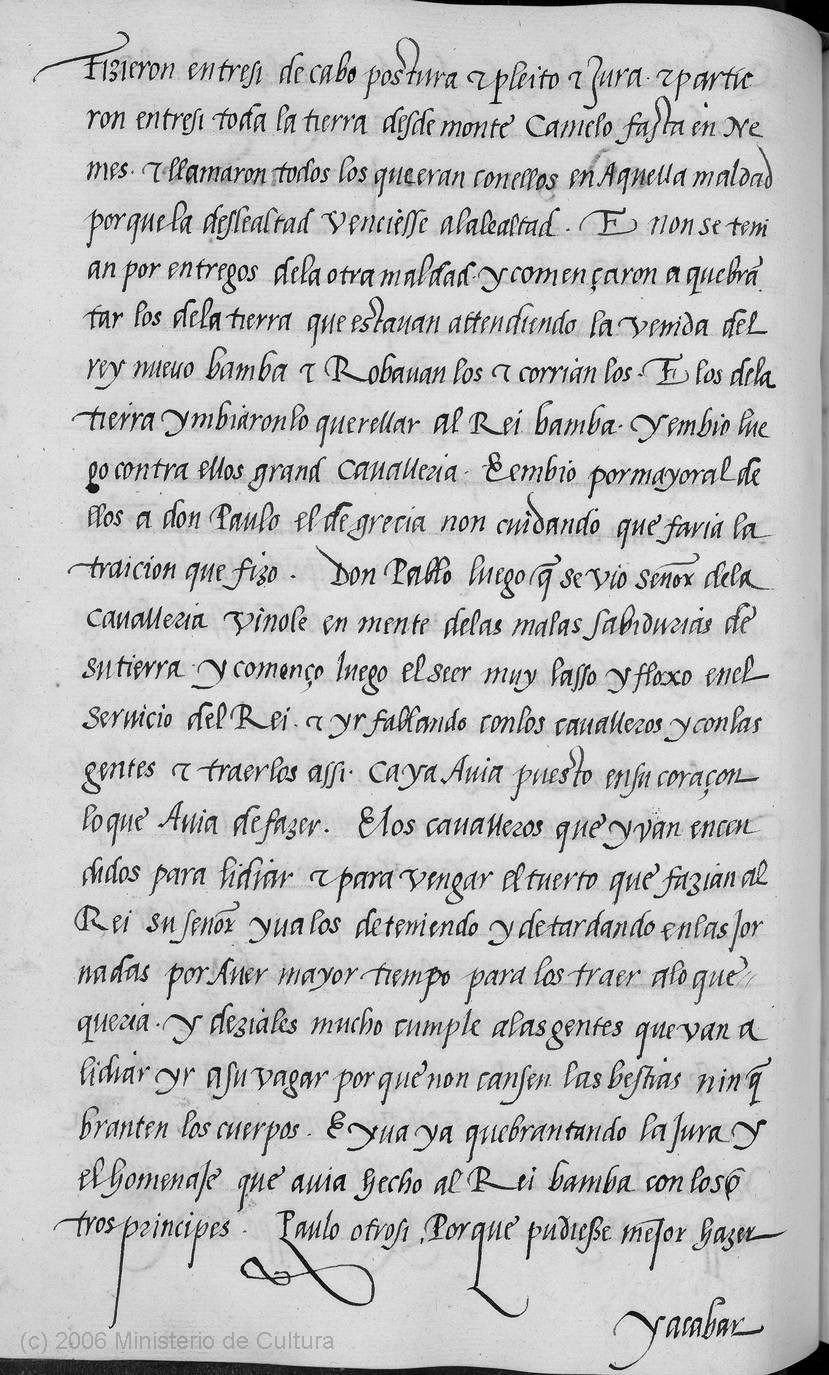 Fizieron entresi de cabo postura ⁊ pleito ⁊ Jura · ⁊ partie
ron entresi toda la tierra desde monte Camelo fasta en Ne
mes · ⁊ llamaron todos los que eran conellos en Aquella maldad
porque la deslealtad venciesse ala lealtad · E non se teni
an por entregos dela otra maldad · y començaron a quebrā
tar los dela tierra que estavan attendiendo la venida del
rey nuevo bamba ⁊ Robavan los ⁊ corrian los · E los dela
tierra ymbiaronlo querellar al Rei bamba · Y embio lue
go contra ellos grand cavalleria · E embio por mayoral de
llos a don Paulo el de grecia non cuidando que faria la
traicion que fizo · Don Pablo luego q̄ se vio señor dela
cavalleria vinole en mente delas malas sabidurias de
su tierra · y començo luego el seer muy lasso y floxo enel
servicio del Rei · ⁊ yr fablando conlos cavalleros y conlas
gentes ⁊ traerlos assi · ca ya Avia puesto ensu coraçon
lo que Avia de fazer · E los cavalleros que yvan encen
didos para lidiar ⁊ para vengar el tuerto que fazian al
Rei su señor yvalos deteniendo y detardando enlas Jor
nadas por Aver mayor tiempo para los traer alo que
queria · y deziales mucho cumple alas gentes que van a
lidiar yr a su vagar porque non cansen las bestias nin q̄
branten los cuerpos · E yva ya quebrantando la Jura y
el homenaje que avia hecho al Rei bamba con los o
tros principes · Paulo otrosi, Porque pudiesse mejor hazer
y acabar
(c) 2006 Ministerio de Cultura